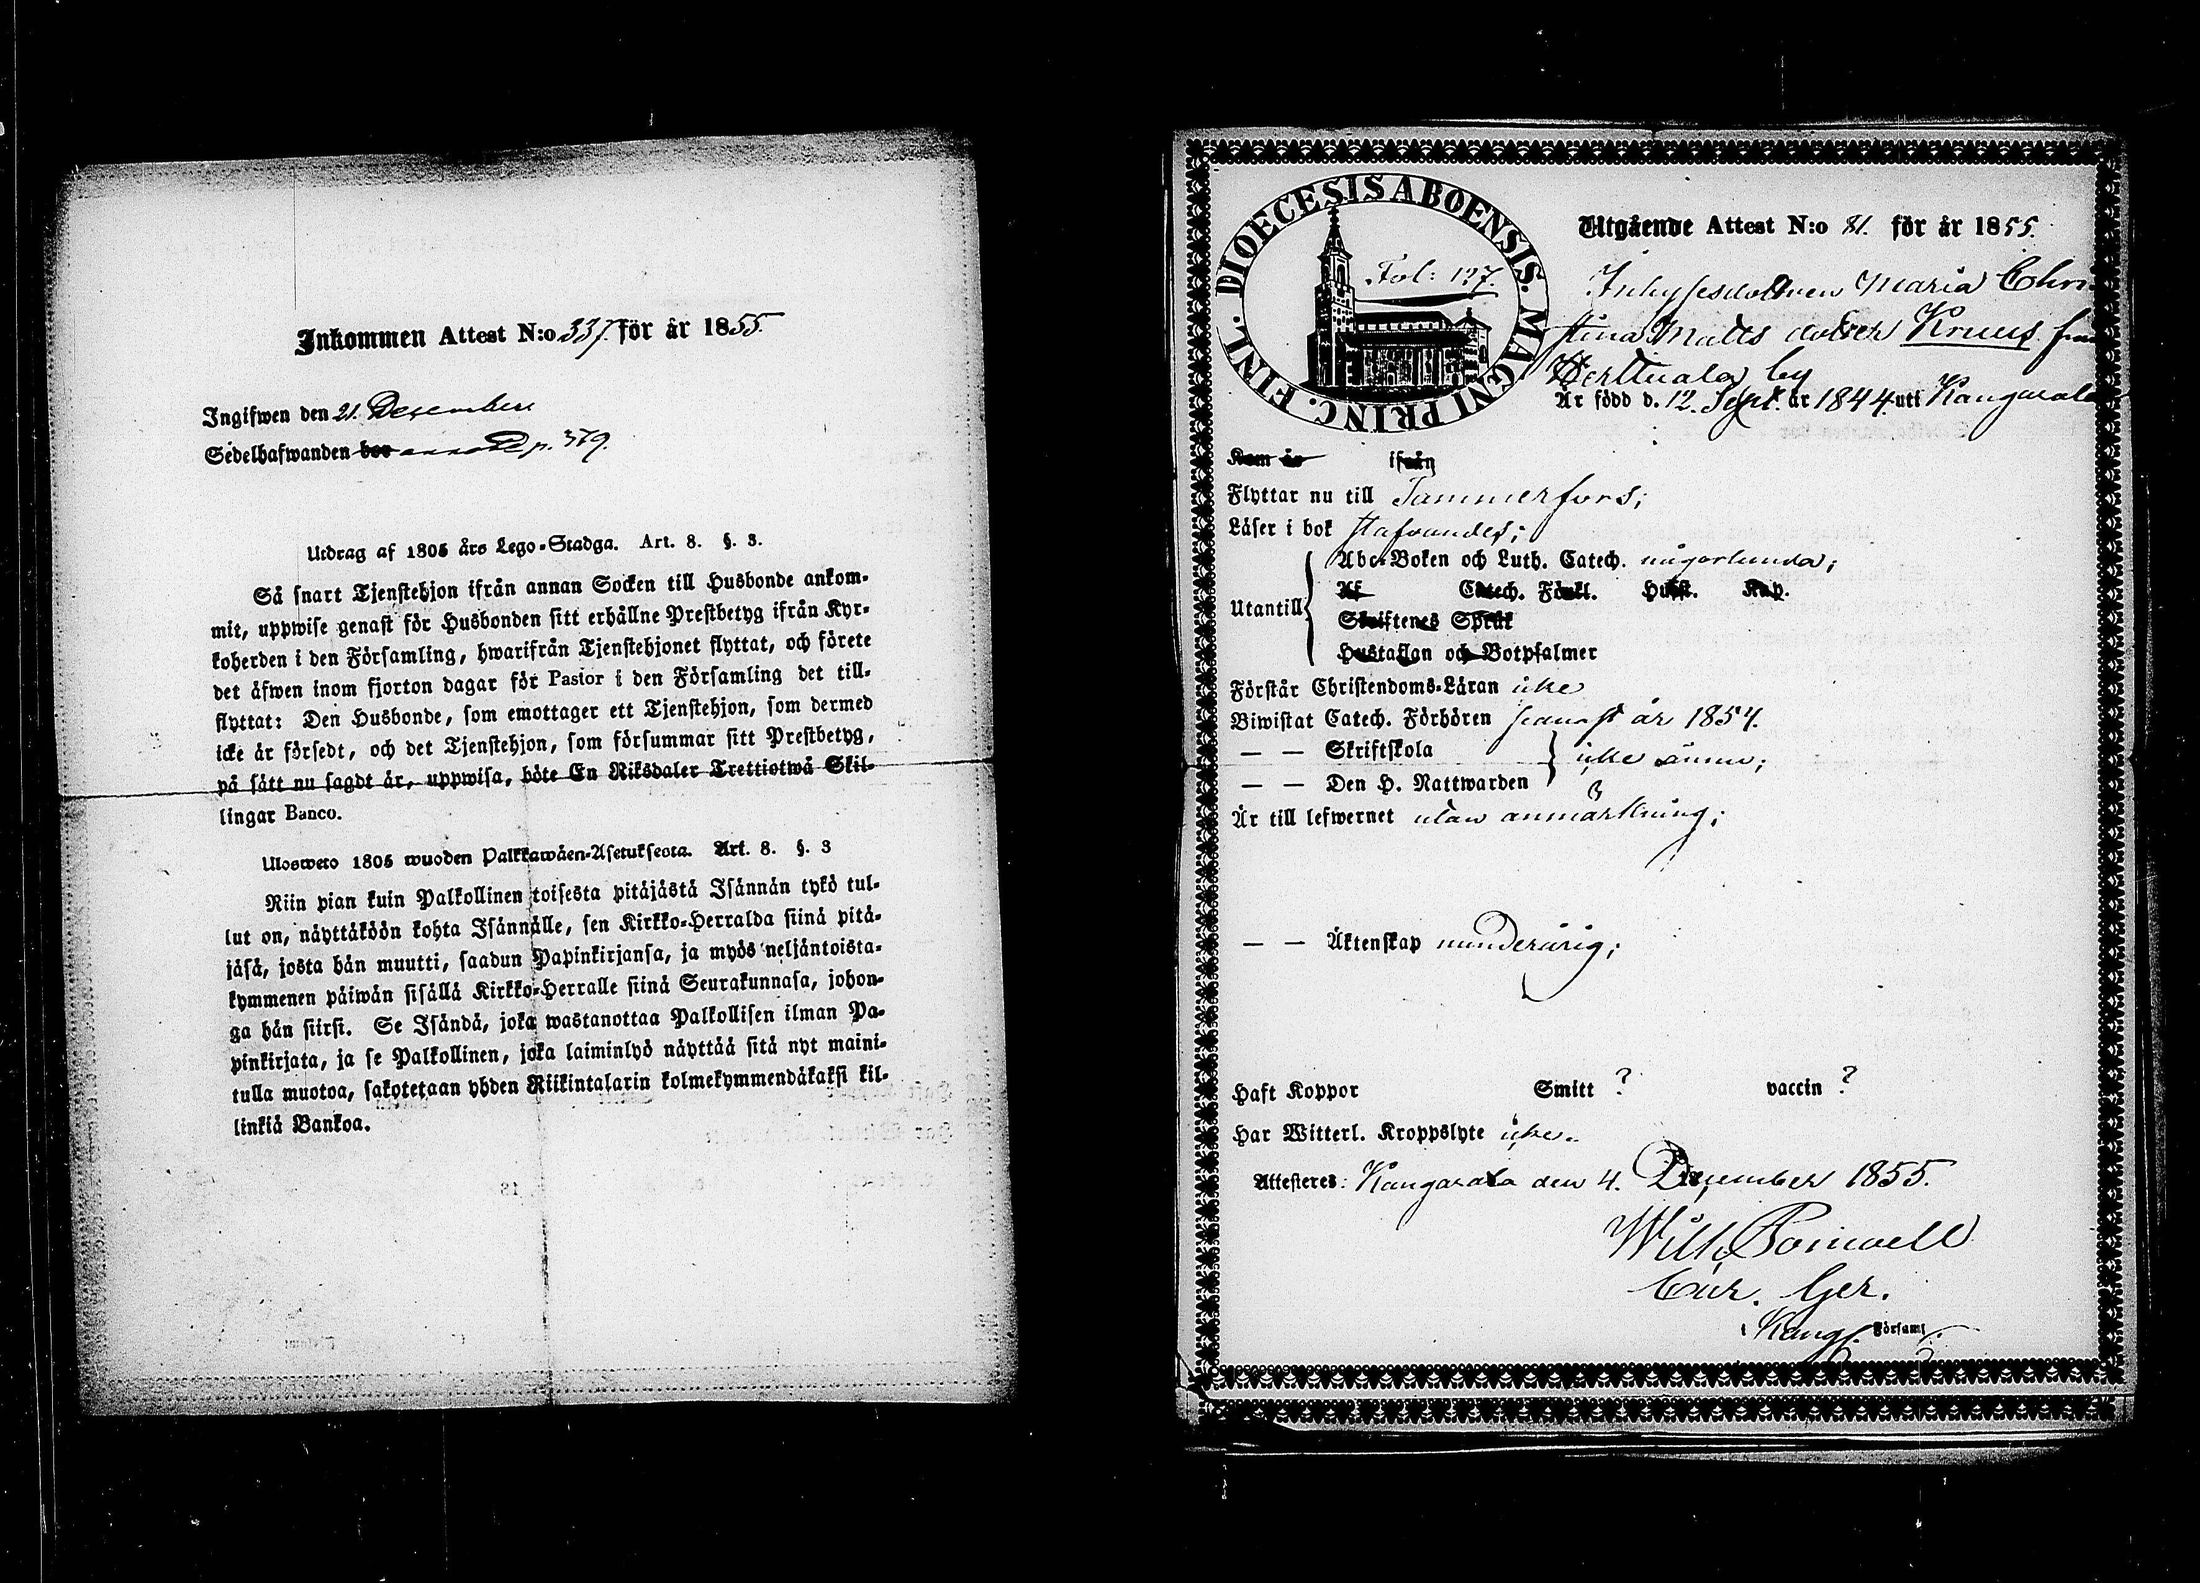 Inkommen Attest N:o 337. för år 1855.
Ingifwen den 21. December
Sedelhafwanden bor annoted p. 379.
Utdrag af 1805 års Lego-Stadga. Art. 8. §. 3.
Så snart Tjenstehjon ifrån annan Socken till Husbonde ankom-
mit, uppwise genast för Husbonden sitt erhållne Prestbetyg ifrån Kyr-
koherden i den Församling, hwarifrån Tjenstehjonet flyttat, och förete
det äfwen inom fjorton dagar för Pastor i den Församling det till-
flyttat: Den Husbonde, som emottager ett Tjenstehjon, som dermed
icke är försedt, och det Tjenstehjon, som försummar sitt Prestbetyg,
på sätt nu sagdt är, uppwisa, böte En Riksdaler Trettiotwå Skil-
lingar Banco.
Uloswето 1805 wuoden Palkkawäen-Asetuksesta. Art. 8. §. 3
Niin pian kuin Palkollinen toisesta pitäjästä Isännän tykö tul-
lut on, näyttäköön kohta Isännälle, sen Kirkko-Herralda siinä pitä-
jäsä, josta hän muutti, saadun Papinkirjansa, ja myös neljäntoista-
kymmenen päiwän sisällä Kirkko-Herralle siinä Seurakunnasa, johon-
ga hän siirsi. Se Isändä, joka wastanottaa Palkollisen ilman Pa-
pinkirjata, ja se Palkollinen, joka laiminlyö näyttää sitä nyt maini-
tulla muotoa, sakotetaan yhden Riikintalarin kolmekymmendäkaksi kil-
linkiä Bankoa.
DIOECESIS ABOENSIS. MAGNI PRINC. FINL.
Fol: 127.
Utgående Attest N:o 81. för år 1855.
Inhysesdottren Maria Chri
stina Matts dotter Kruus från
Herttuala by
Är född d. 12. Sept. år 1844. uti Kangasala
Kom år ifrån
Flyttar nu till Tammerfors;
Läser i bok stafvandes;
Utantill
Abc-Boken och Luth. Catech. någorlunda;
Af Catech. Förkl. Husst. Kap.
Skriftenes Språk
Hustaflan och Botpsalmer
Förstår Christendoms-Läran icke
Biwistat Catech. Förhören senast år 1854.
— — Skriftskola
icke ännu;
— — Den H. Nattwarden
Är till lefwernet utan anmärkning;
— — Äktenskap minderårig;
Haft Koppor Smitt ? vaccin ?
Har Witterl. Kroppslyte icke.
Attesteres: Kangasala den 4. December 1855.
Wilh. Poinvell
Cur. Ger.
i Kang. Församl.